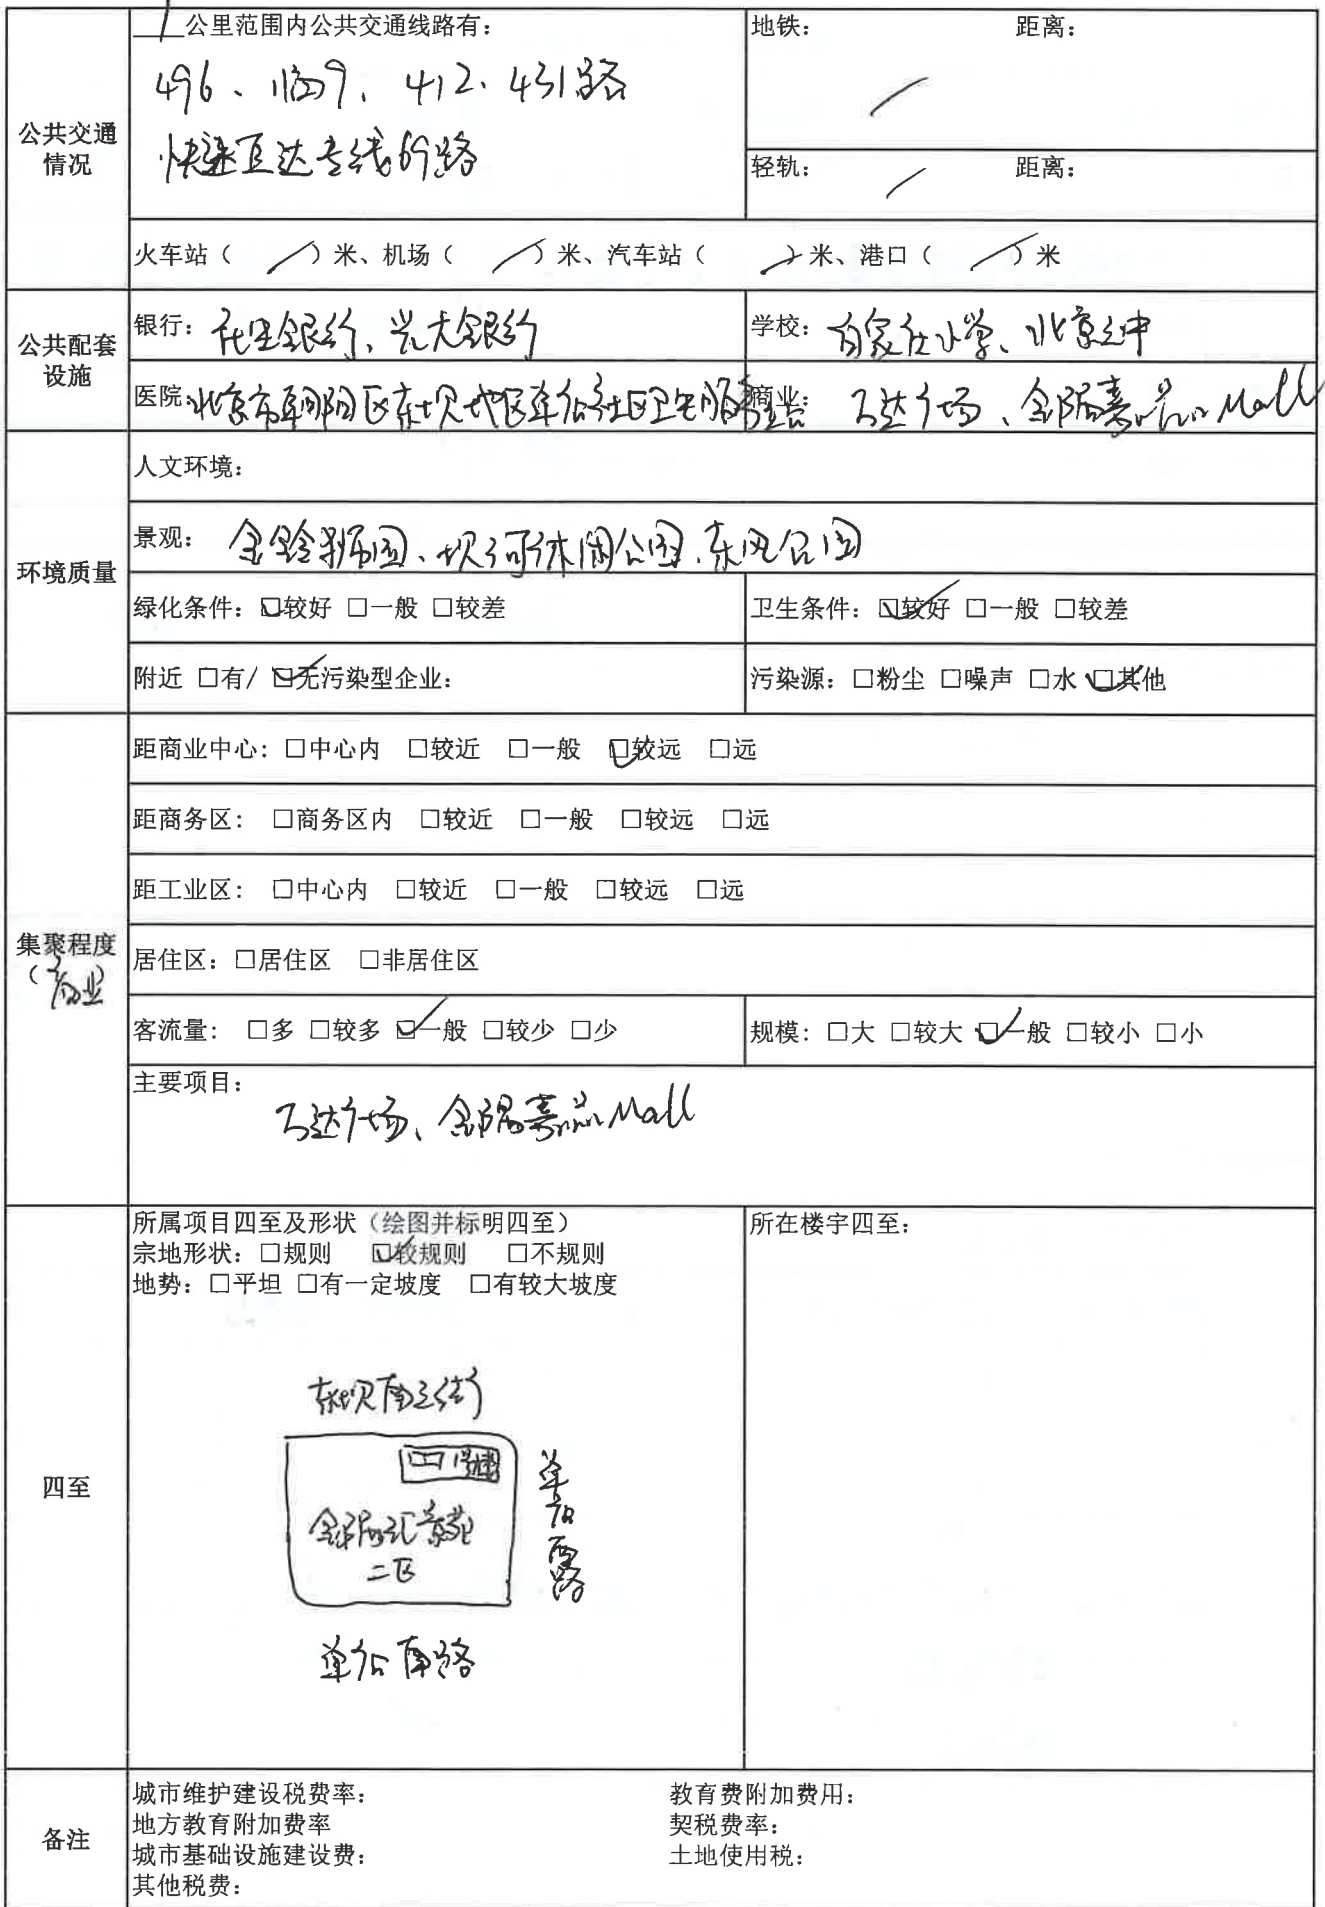 1公里范围内公共交通线路有：
地铁： 距离：
496、临79、412、431路
快速直达专线69路
公共交通
情况
轻轨： 距离：
火车站（ ／ ）米、机场（ ／ ）米、汽车站（ ／ ）米、港口（ ／ ）米
公共配套
设施
银行：民生银行、光大银行
学校：白家庄小学、北京二中
医院：北京市朝阳区东坝地区单店社区卫生服务站
商业：万达广场、金隅嘉品Mall
环境质量
人文环境：
景观：金铃狮园、坝河休闲公园、东风公园
绿化条件：☑较好 □一般 □较差
卫生条件：☑较好 □一般 □较差
附近 □有/ ☑无污染型企业：
污染源：□粉尘 □噪声 □水 ☑其他
集聚程度
（商业）
距商业中心：□中心内 □较近 □一般 ☑较远 □远
距商务区： □商务区内 □较近 □一般 □较远 □远
距工业区： □中心内 □较近 □一般 □较远 □远
居住区：□居住区 □非居住区
客流量： □多 □较多 ☑一般 □较少 □少
规模：□大 □较大 ☑一般 □较小 □小
主要项目：
万达广场、金隅嘉品Mall
四至
所属项目四至及形状（绘图并标明四至）
宗地形状：□规则 ☑较规则 □不规则
地势：□平坦 □有一定坡度 □有较大坡度
所在楼宇四至：
东坝南二街
1号楼
金隅汇景苑
二区
单店西路
单店南路
备注
城市维护建设税费率： 教育费附加费用：
地方教育附加费率 契税费率：
城市基础设施建设费： 土地使用税：
其他税费：